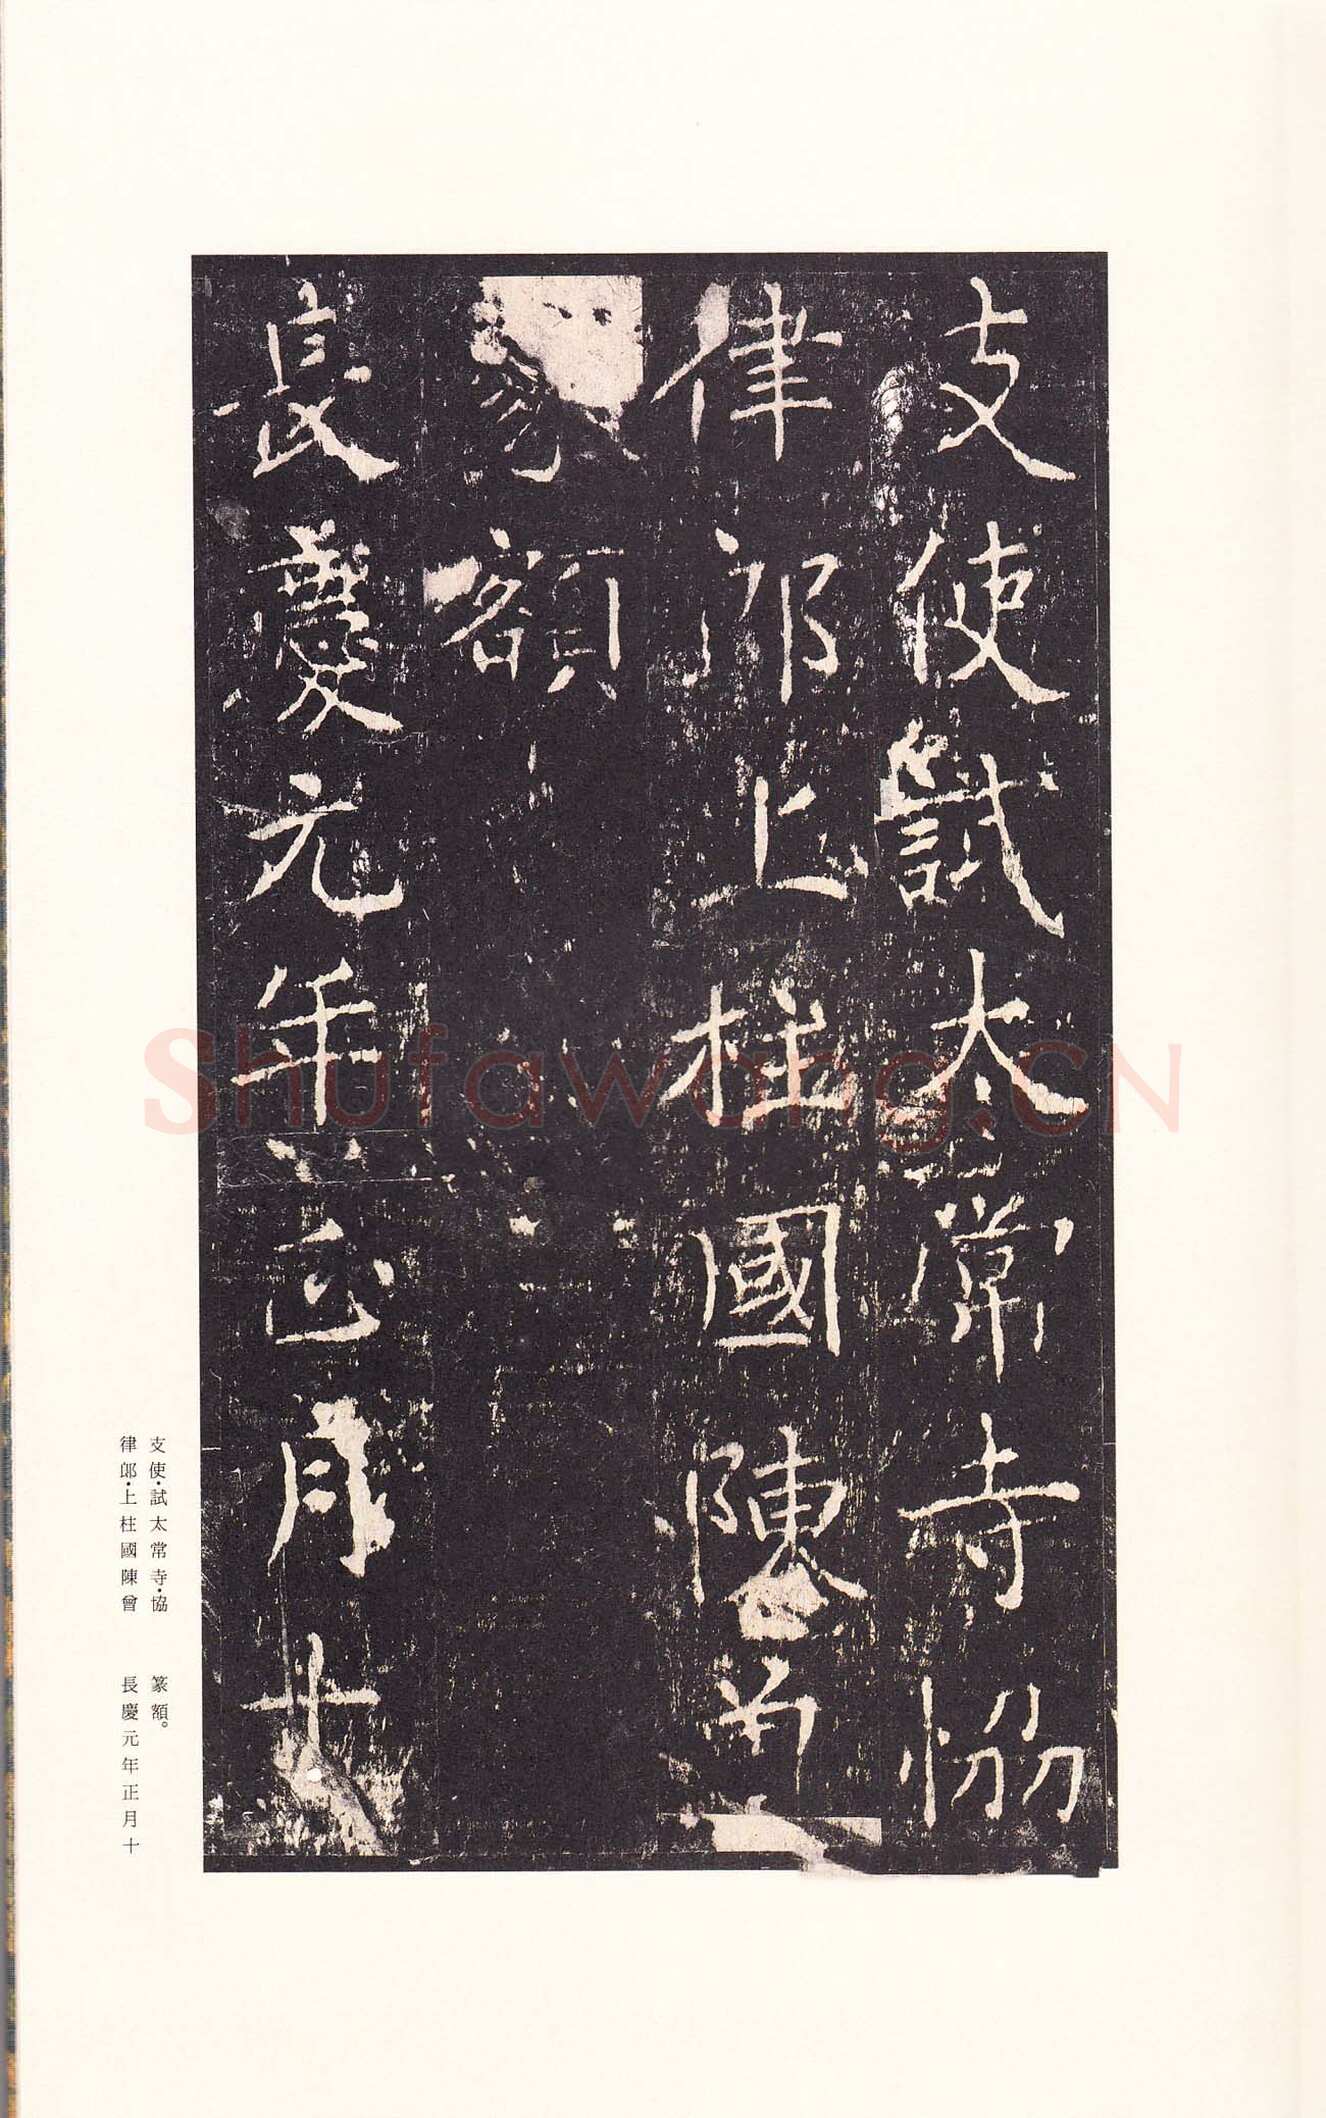 支使試太常寺恊
律郎上柱國陳曾
篆額
長慶元年正月十
支使·試太常寺·協
律郎·上柱國陳曾
篆額。
長慶元年正月十
Shufawang.CN